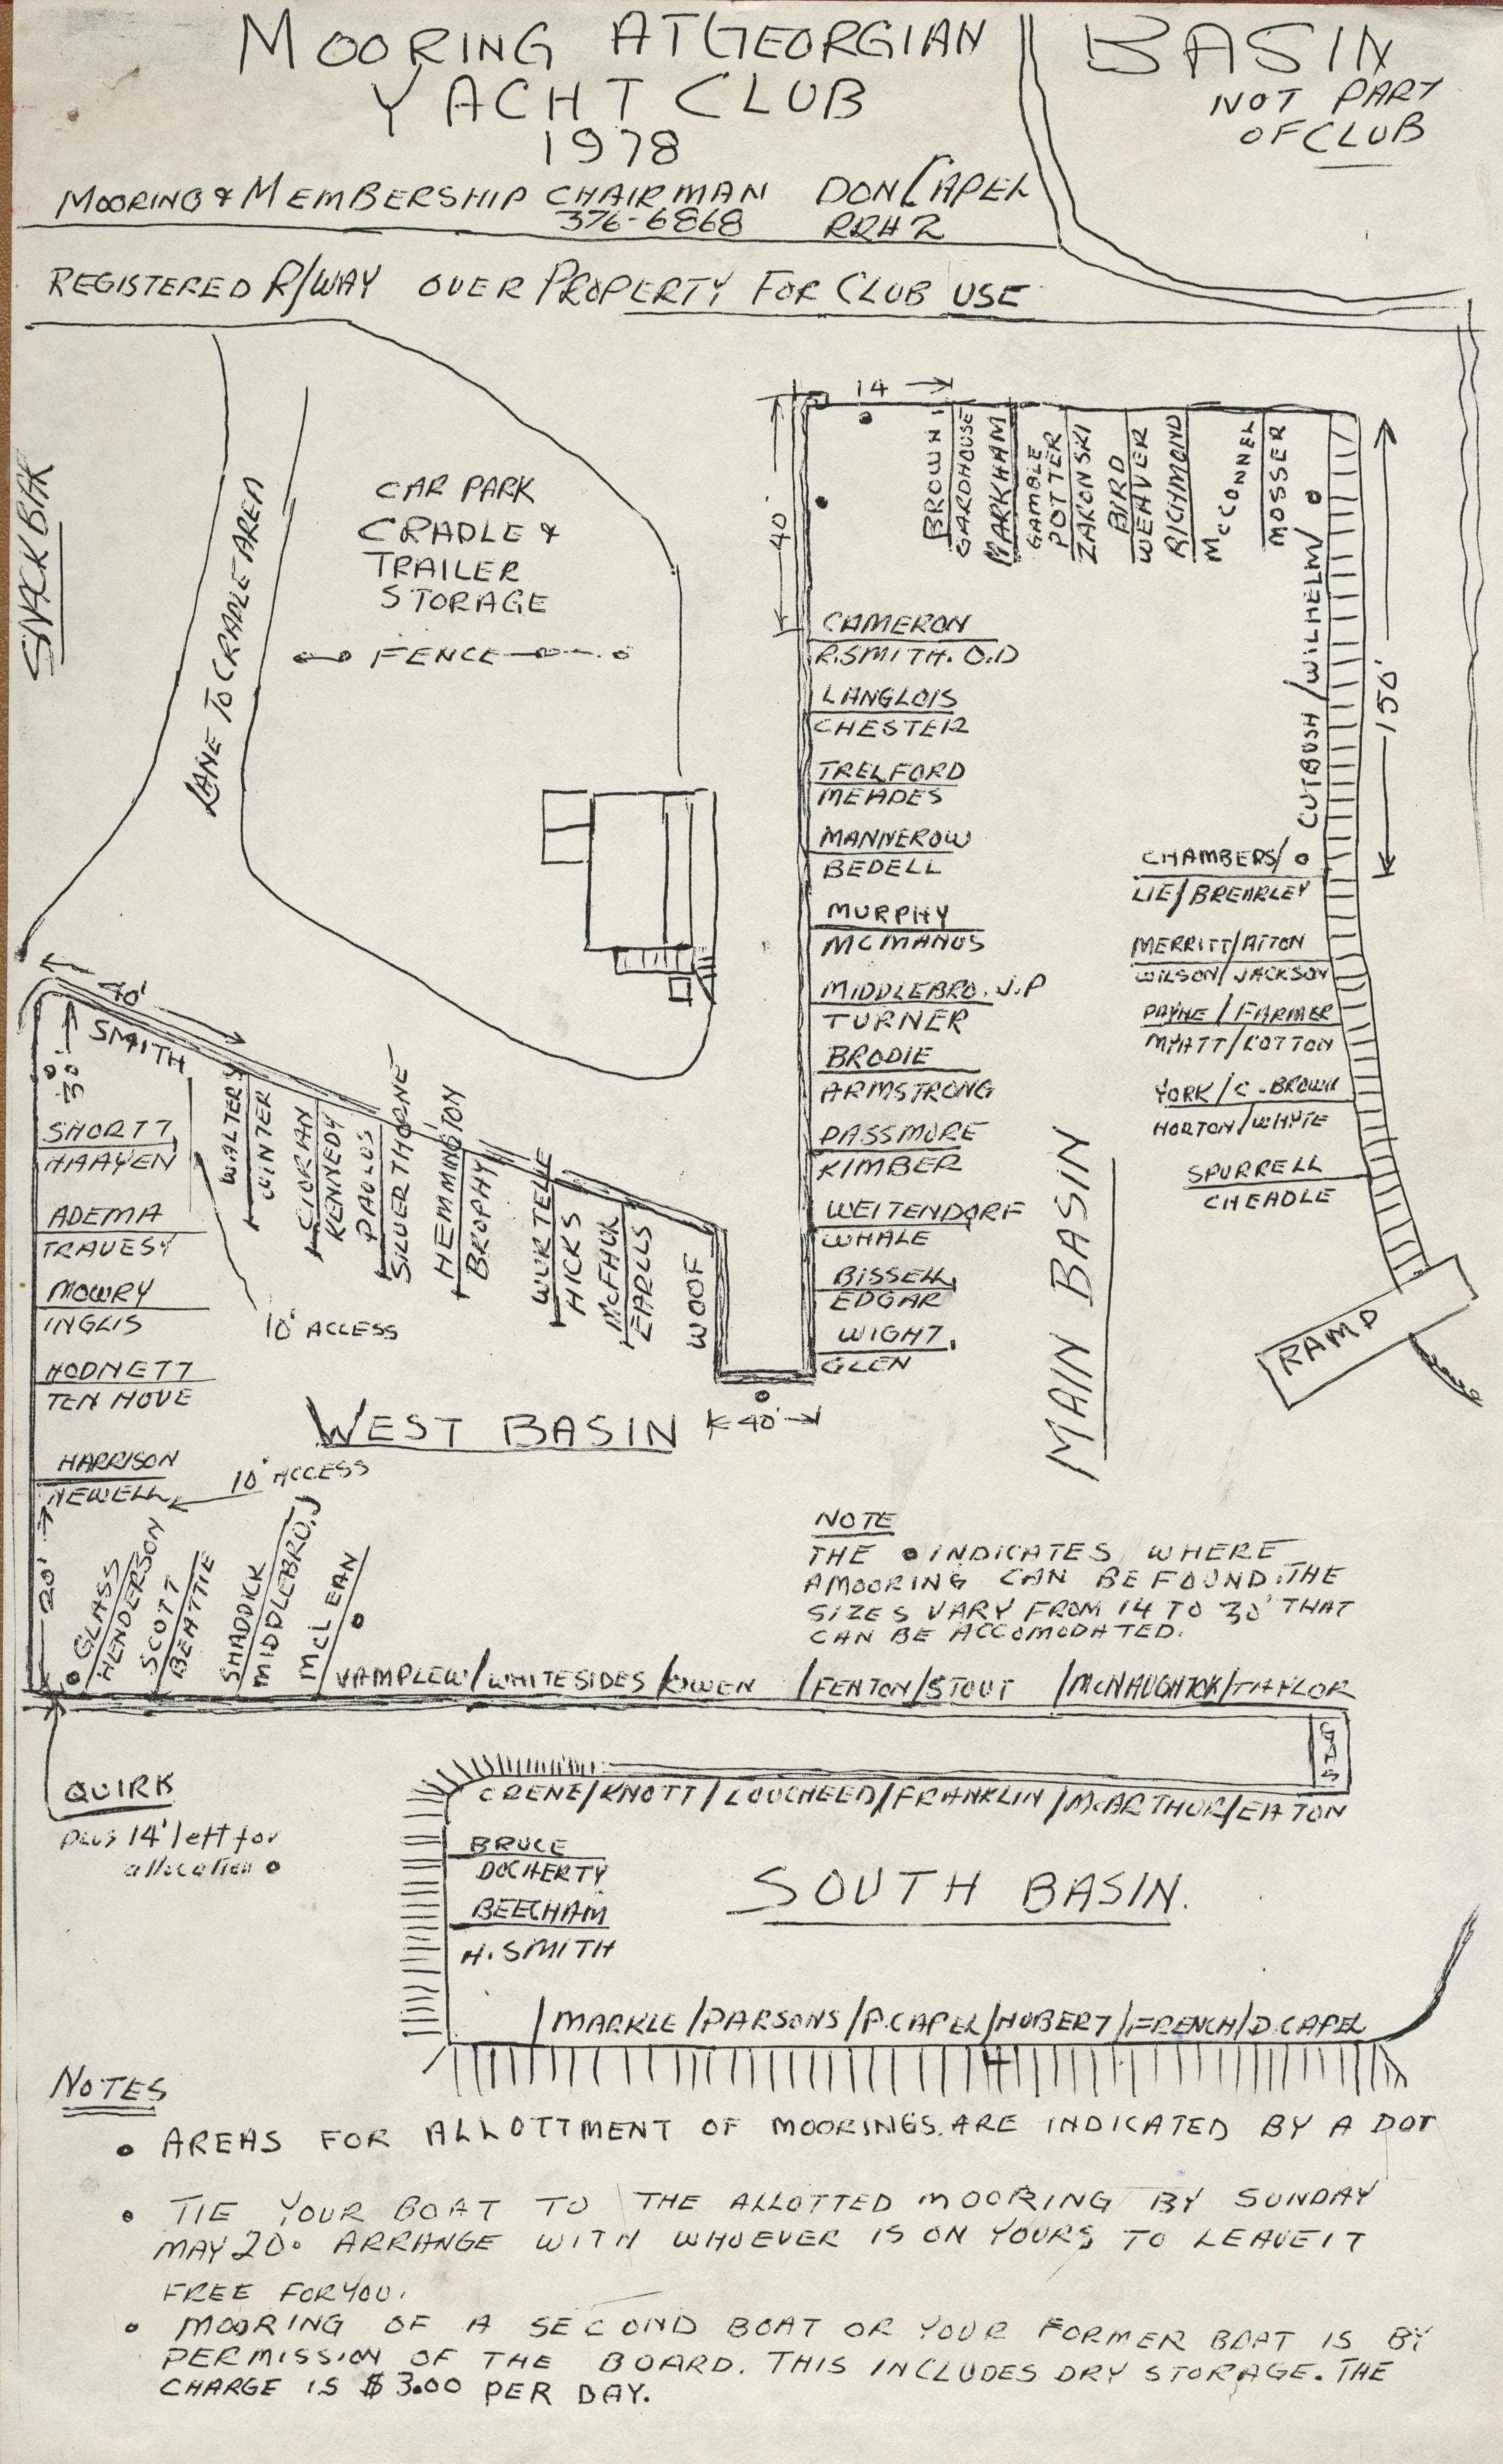 MOORING AT GEORGIAN
YACHT CLUB
1978
MOORING & MEMBERSHIP CHAIRMAN DON CAPEL
376-6868 RR#2
BASIN
NOT PART
OF CLUB
REGISTERED R/WAY OVER PROPERTY FOR CLUB USE
SNACK BAR
LANE TO CRADLE AREA
CAR PARK
CRADLE &
TRAILER
STORAGE
FENCE
14
40'
BROWN
GARDHOUSE
MARKHAM
GAMBLE
POTTER
ZARONSKI
BIRD
WEAVER
RICHMOND
McCONNEL
MOSSER
CUTBUSH/WILHELM/
150'
CAMERON
R.SMITH. O.D
LANGLOIS
CHESTER
TRELFORD
MEADES
MANNEROW
BEDELL
MURPHY
MCMANUS
MIDDLEBRO. J.P
TURNER
BRODIE
ARMSTRONG
PASSMORE
KIMBER
WEITENDORF
WHALE
BISSELL
EDGAR
WIGHT
GLEN
CHAMBERS/
LIE/BREARLEY
MERRITT/ATTON
WILSON/JACKSON
PAYNE/FARMER
MYATT/COTTON
YORK/C.BROWN
HORTON/WHYTE
SPURRELL
CHEADLE
RAMP
MAIN BASIN
40'
SMITH
30'
SHORTT
HAAYEN
ADEMA
TRAVESY
MOWRY
INGLIS
HODNETT
TEN HOVE
HARRISON
NEWELL
WALTERS
WINTER
CIORIAN
KENNEDY
PAULUS
SILVERTHORNE
HEMMINGTON
BROPHY
WURTELE
HICKS
McFHUR
EARLLS
WOOF
10' ACCESS
WEST BASIN
40'
10' ACCESS
20'
GLASS
HENDERSON
SCOTT
BEATTIE
SHADDICK
MIDDLEBRO.J
McLEAN
NOTE
THE • INDICATES WHERE
A MOORING CAN BE FOUND. THE
SIZES VARY FROM 14 TO 30' THAT
CAN BE ACCOMODATED.
VAMPLEW/WHITESIDES/OWEN /FENTON/STOUT /McNAUGHTON/TAYLOR
GAS
QUIRK
PLUS 14' left for
allocation
CRENE/KNOTT/LOUCHEED/FRANKLIN/McARTHUR/EATON
BRUCE
DOCHERTY
BEECHAM
H. SMITH
SOUTH BASIN.
/MARKLE/PARSONS/P.CAPEL/HUBERT/FRENCH/D.CAPEL
NOTES
• AREAS FOR ALLOTTMENT OF MOORINGS ARE INDICATED BY A DOT
• TIE YOUR BOAT TO THE ALLOTTED MOORING BY SUNDAY
MAY 20. ARRANGE WITH WHOEVER IS ON YOURS TO LEAVE IT
FREE FOR YOU.
• MOORING OF A SECOND BOAT OR YOUR FORMER BOAT IS BY
PERMISSION OF THE BOARD. THIS INCLUDES DRY STORAGE. THE
CHARGE IS $3.00 PER DAY.